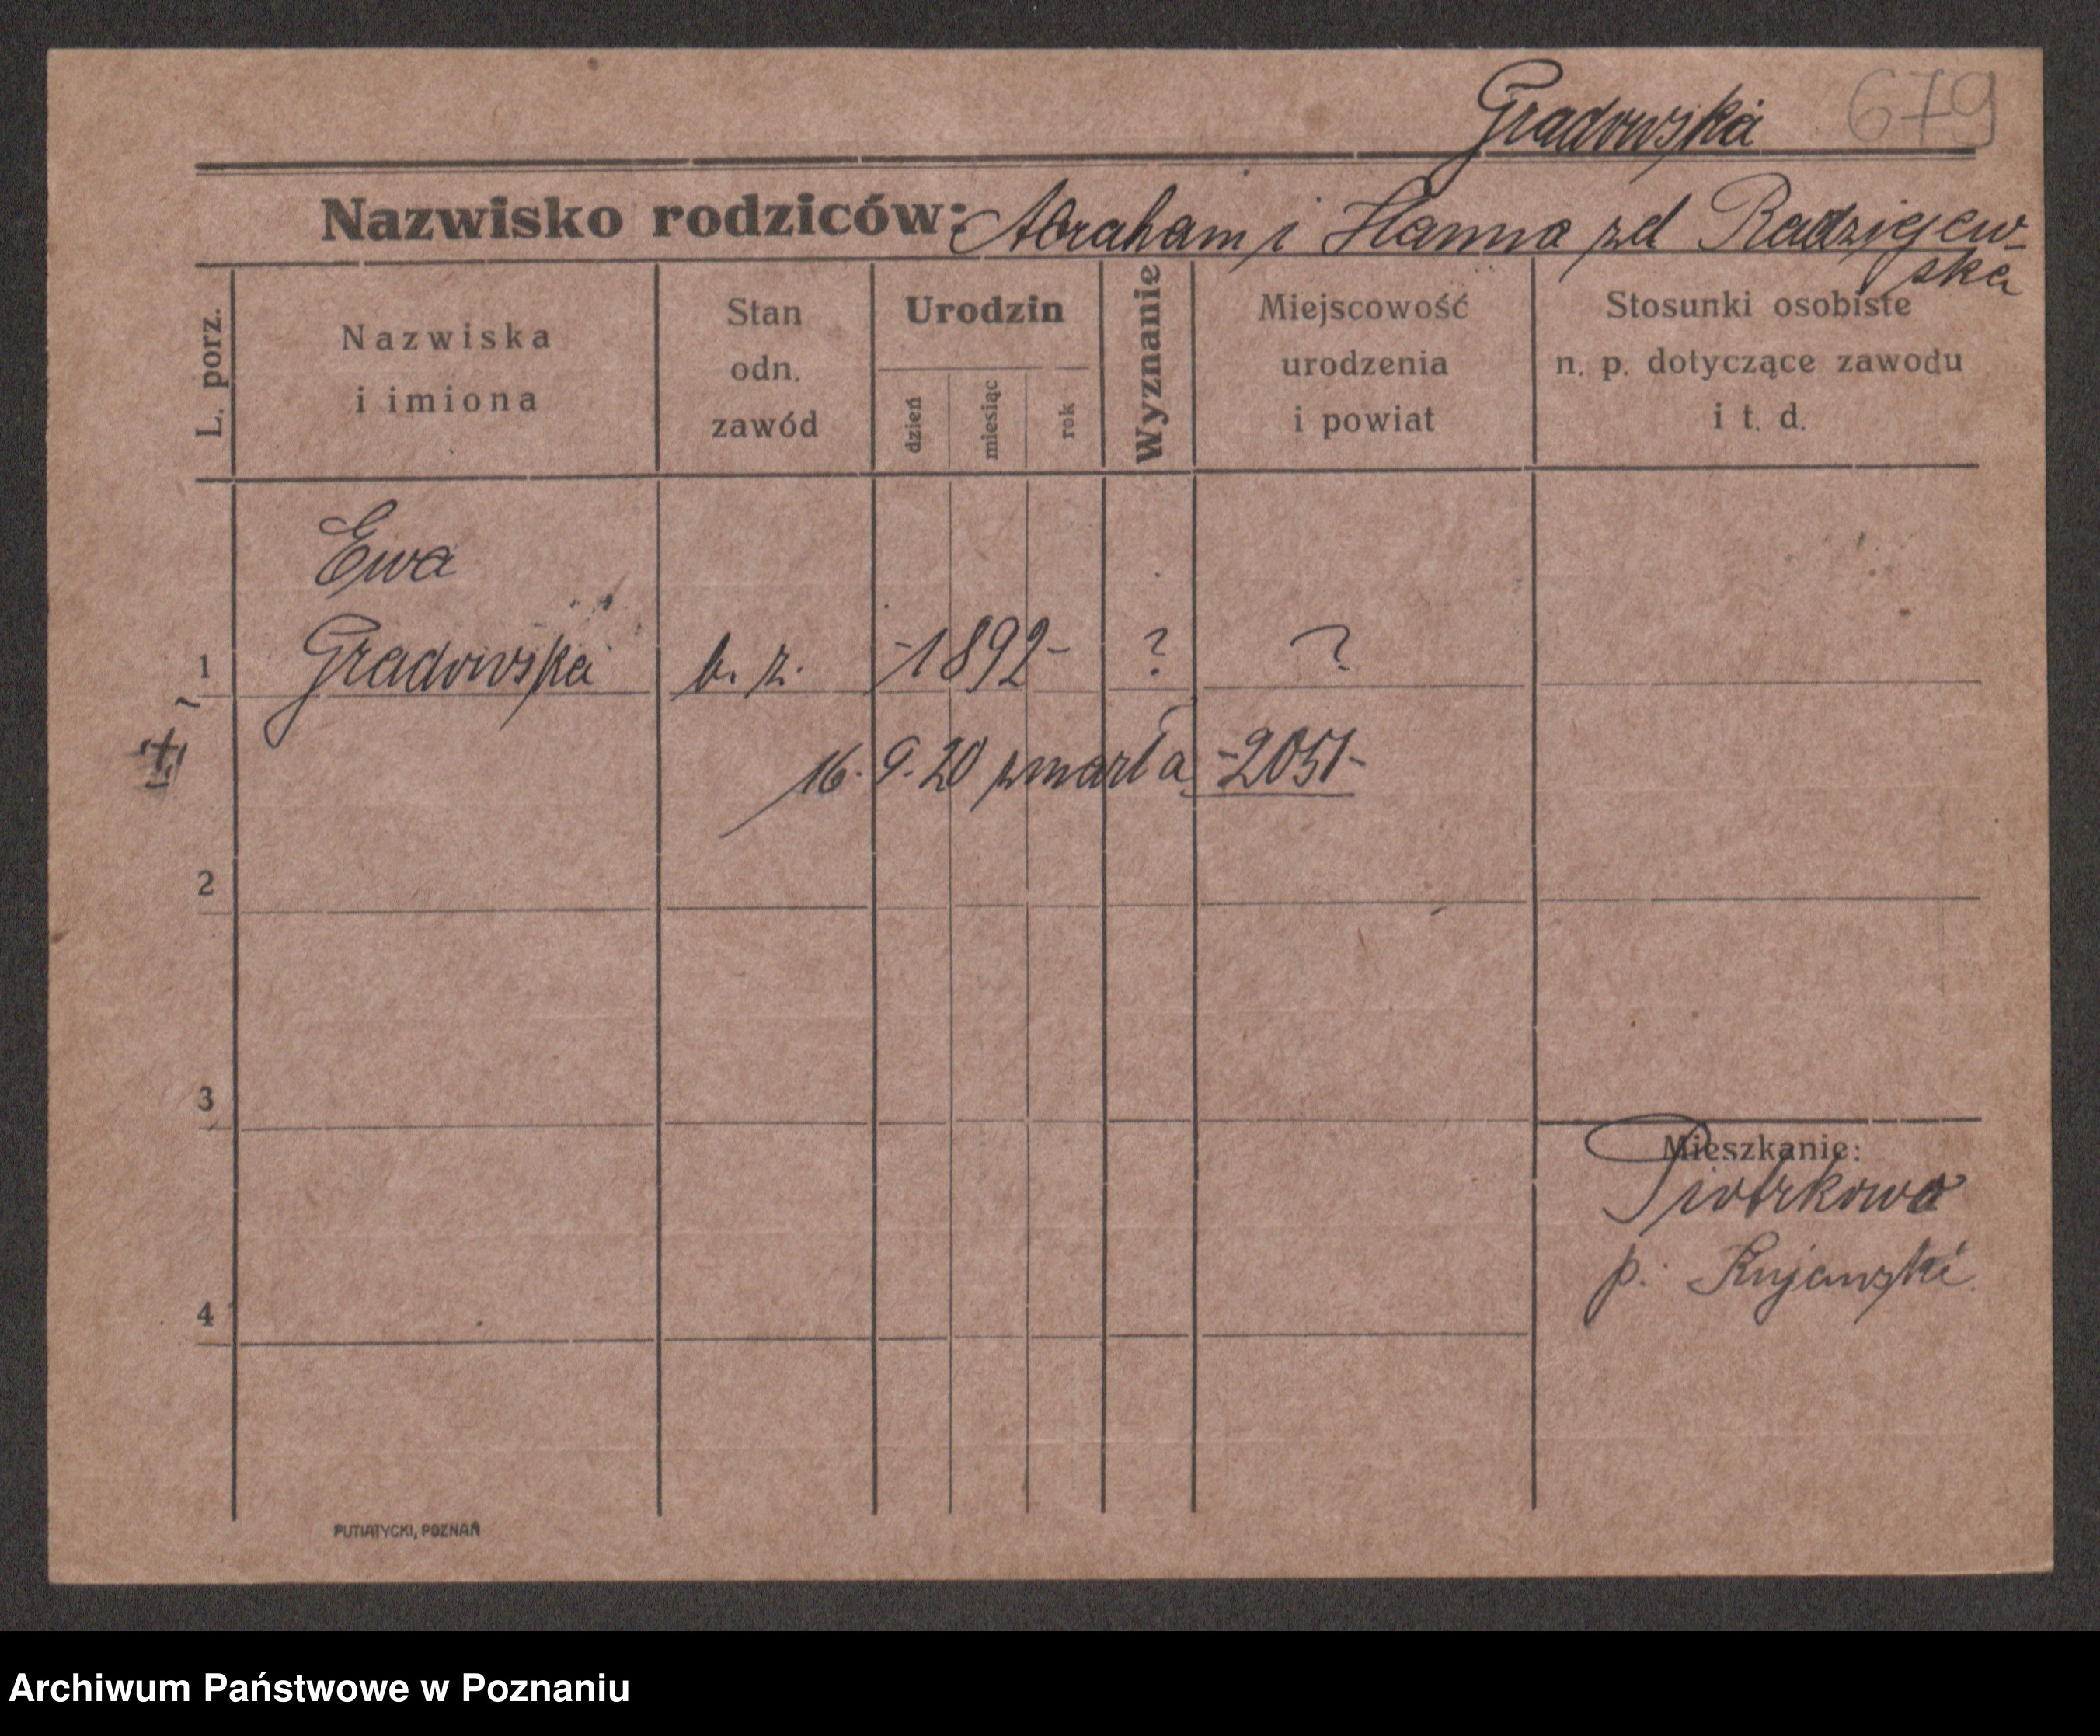 Gradowska 679
Nazwisko rodziców: Abraham i Hanna zd Radziejew-
ska
L. porz.
Nazwiska
i imiona
Stan
odn.
zawód
Urodzin
dzień
miesiąc
rok
Wyznanie
Miejscowość
urodzenia
i powiat
Stosunki osobiste
n. p. dotyczące zawodu
i t. d.
Ewa
1 Gradowska b. z. -1892- ? ?
16. 9. 20 zmarła -2051-
2
3
Mieszkanie:
Piotrkowo
p. Kujawski
4
PUTIATYCKI, POZNAŃ
Archiwum Państwowe w Poznaniu